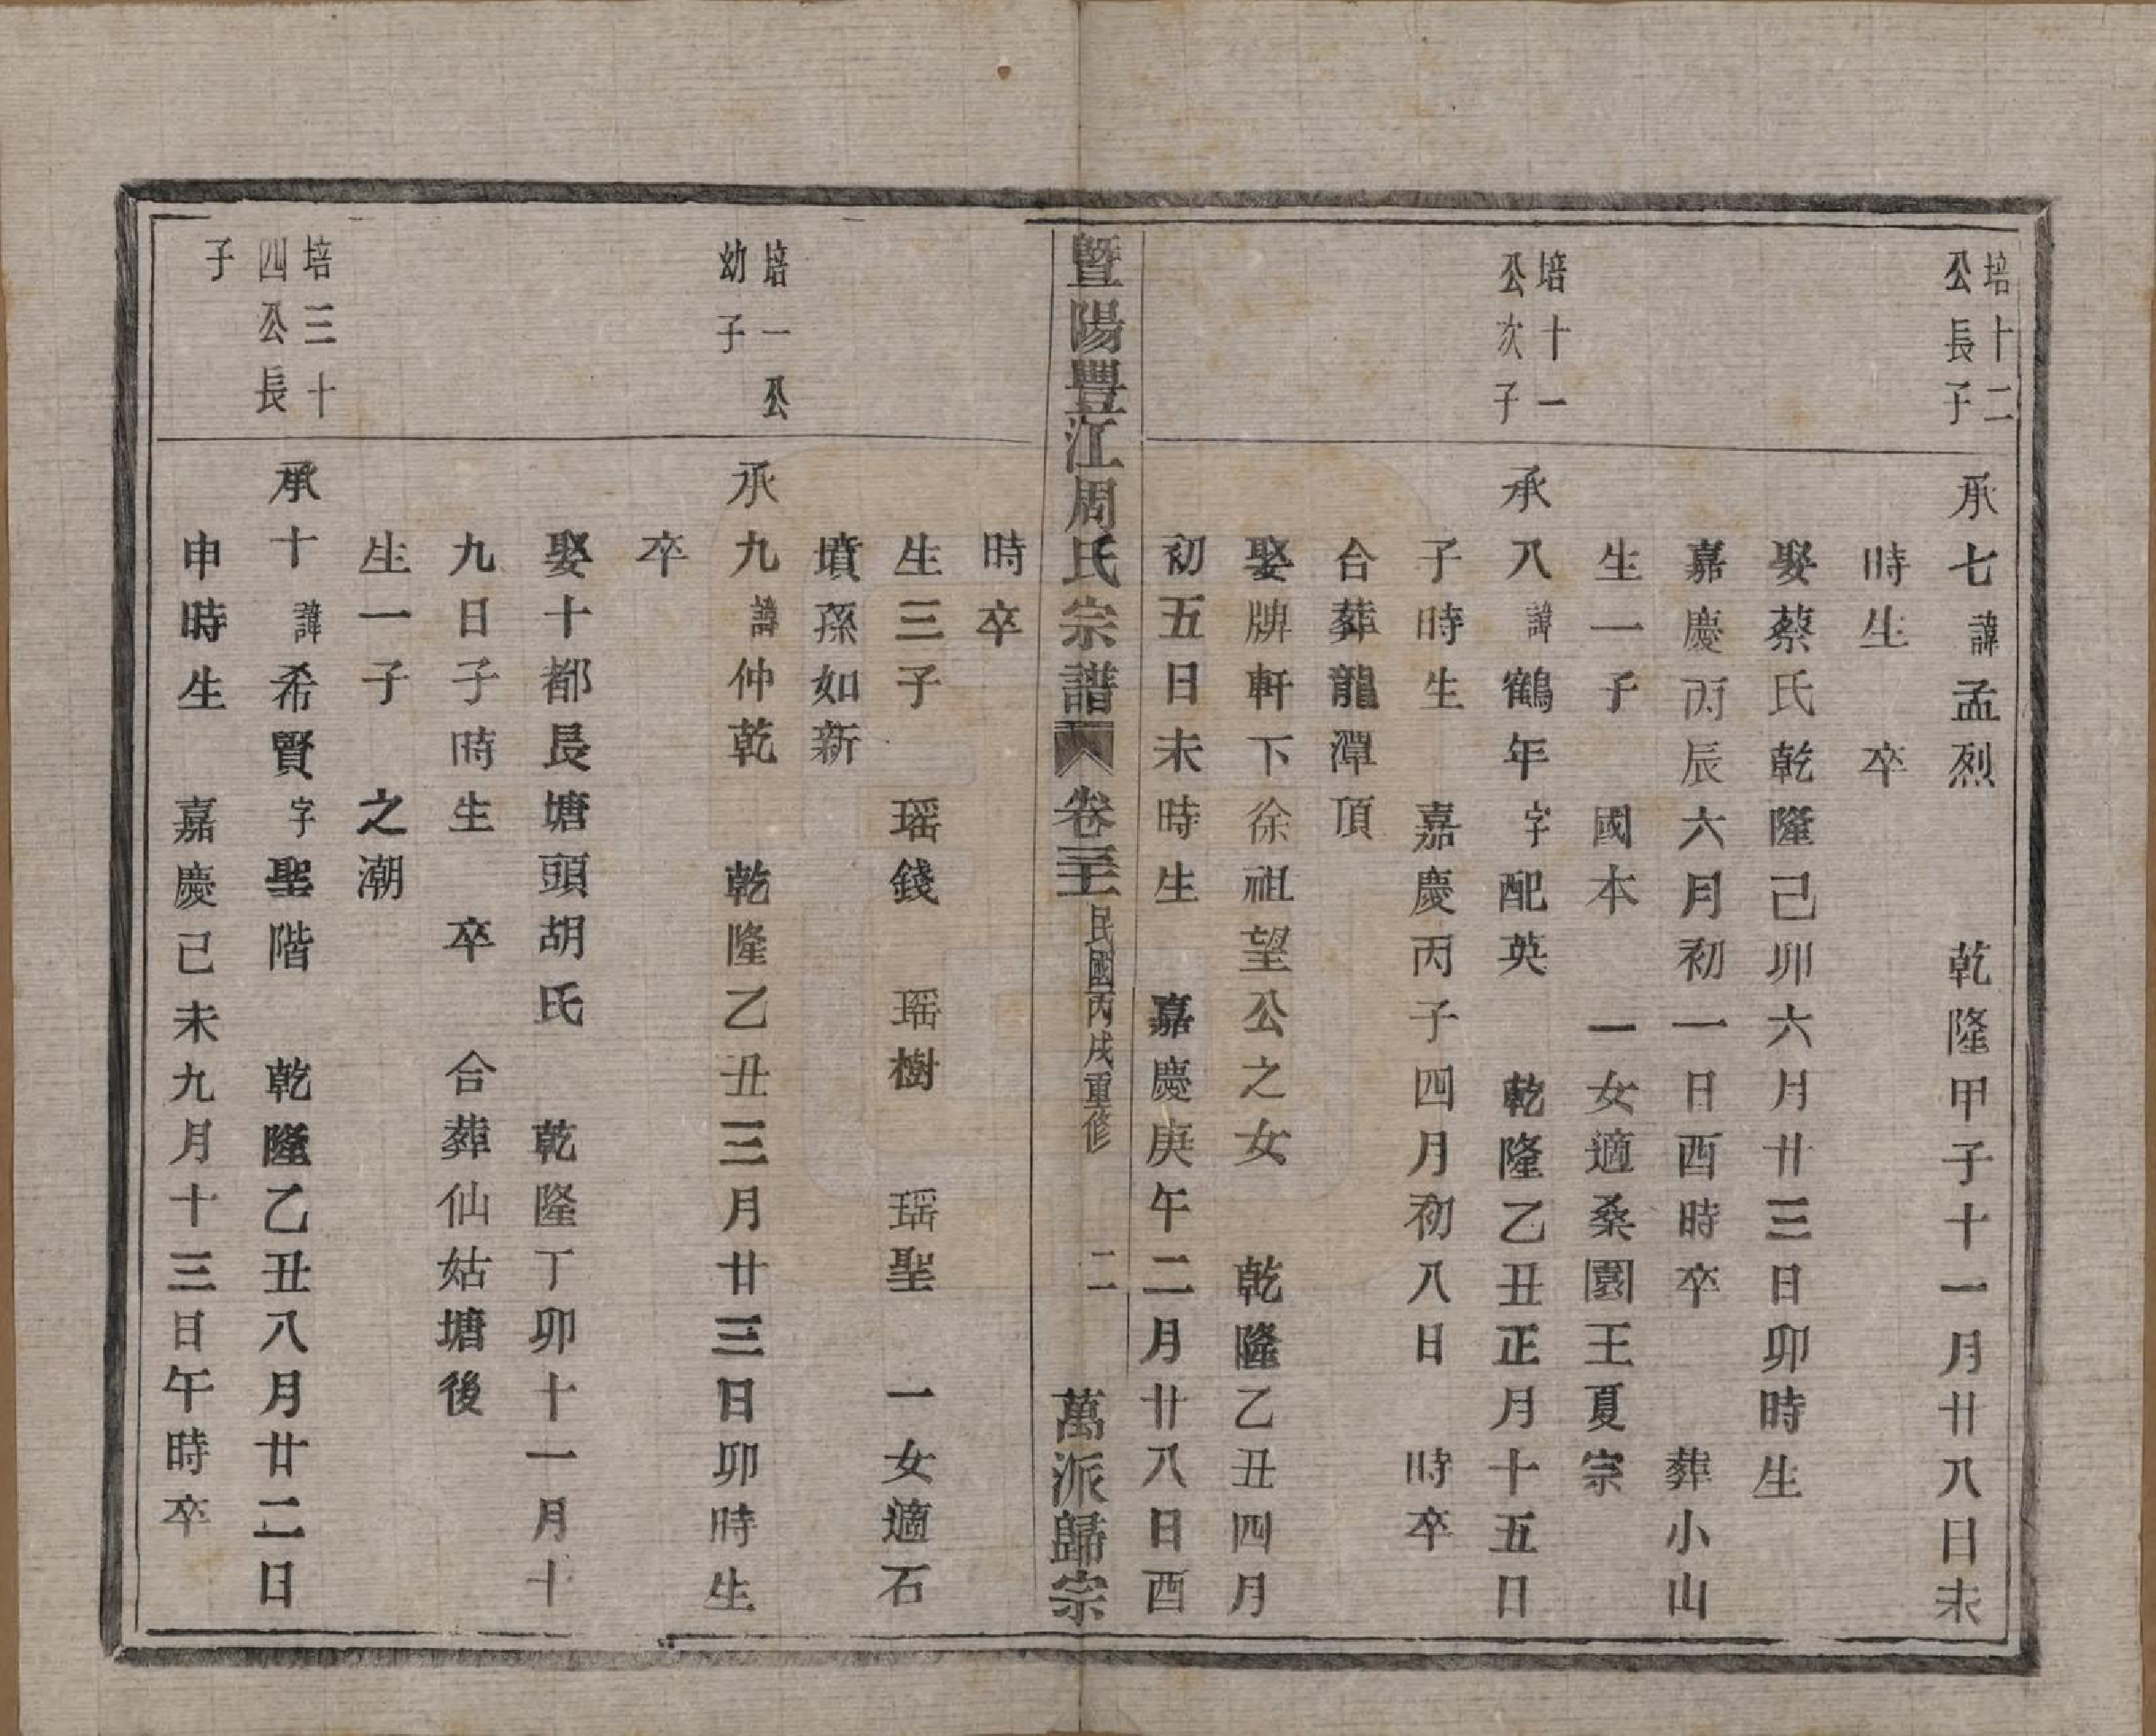 培十二
公長子
承七諱孟烈 乾隆甲子十一月廿八日未
時生 卒
娶蔡氏乾隆己卯六月廿三日卯時生
嘉慶丙辰六月初一日酉時卒 葬小山
生一子 國本 一女適桑園王夏宗
培十一
公次子
承八諱鶴年字配英 乾隆乙丑正月十五日
子時生 嘉慶丙子四月初八日 時卒
合葬龍潭頂
娶牌軒下徐祖望公之女 乾隆乙丑四月
初五日未時生 嘉慶庚午二月廿八日酉
暨陽豐江周氏宗譜 卷三十 民國丙戌重修 二 萬派歸宗
時卒
生三子 瑶錢 瑶樹 瑶聖 一女適石
墳孫如新
培一公
幼子
承九諱仲乾 乾隆乙丑三月廿三日卯時生
卒
娶十都長塘頭胡氏 乾隆丁卯十一月十
九日子時生 卒 合葬仙姑塘後
生一子 之潮
培三十
四公長
子
承十諱希賢字聖階 乾隆乙丑八月廿二日
申時生 嘉慶己未九月十三日午時卒